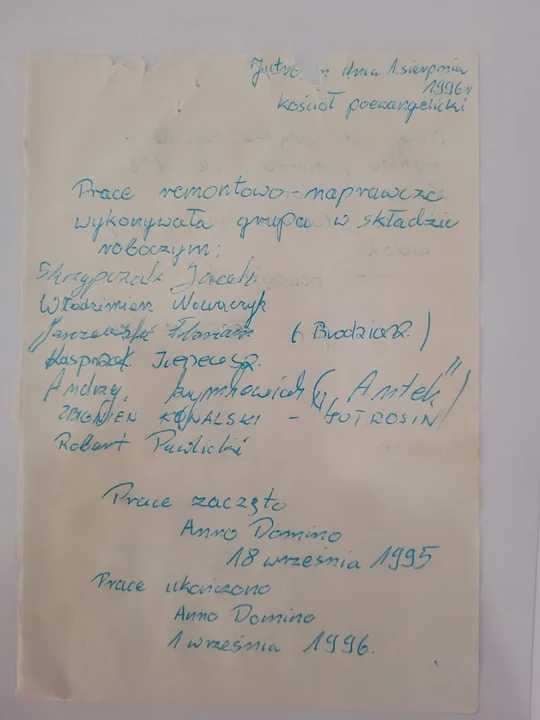 dnia 1. sierpnia
1996r
kościół poewangelicki
Prace remontowo-naprawcze
wykonywała grupa w składzie
roboczym:
Skrzypczak Jacek
Włodzimierz Nowaczyk
(Brodziarz.)
Kasprzak
Andrzej Szymkowiak („Antek")
ZBIGNIEW KOWALSKI - "JUTROSIN
Robert Pawlicki
Prace zaczęto
Anno Domino
18 września 1995
Prace ukończono
Anno Domino
1 września 1996.